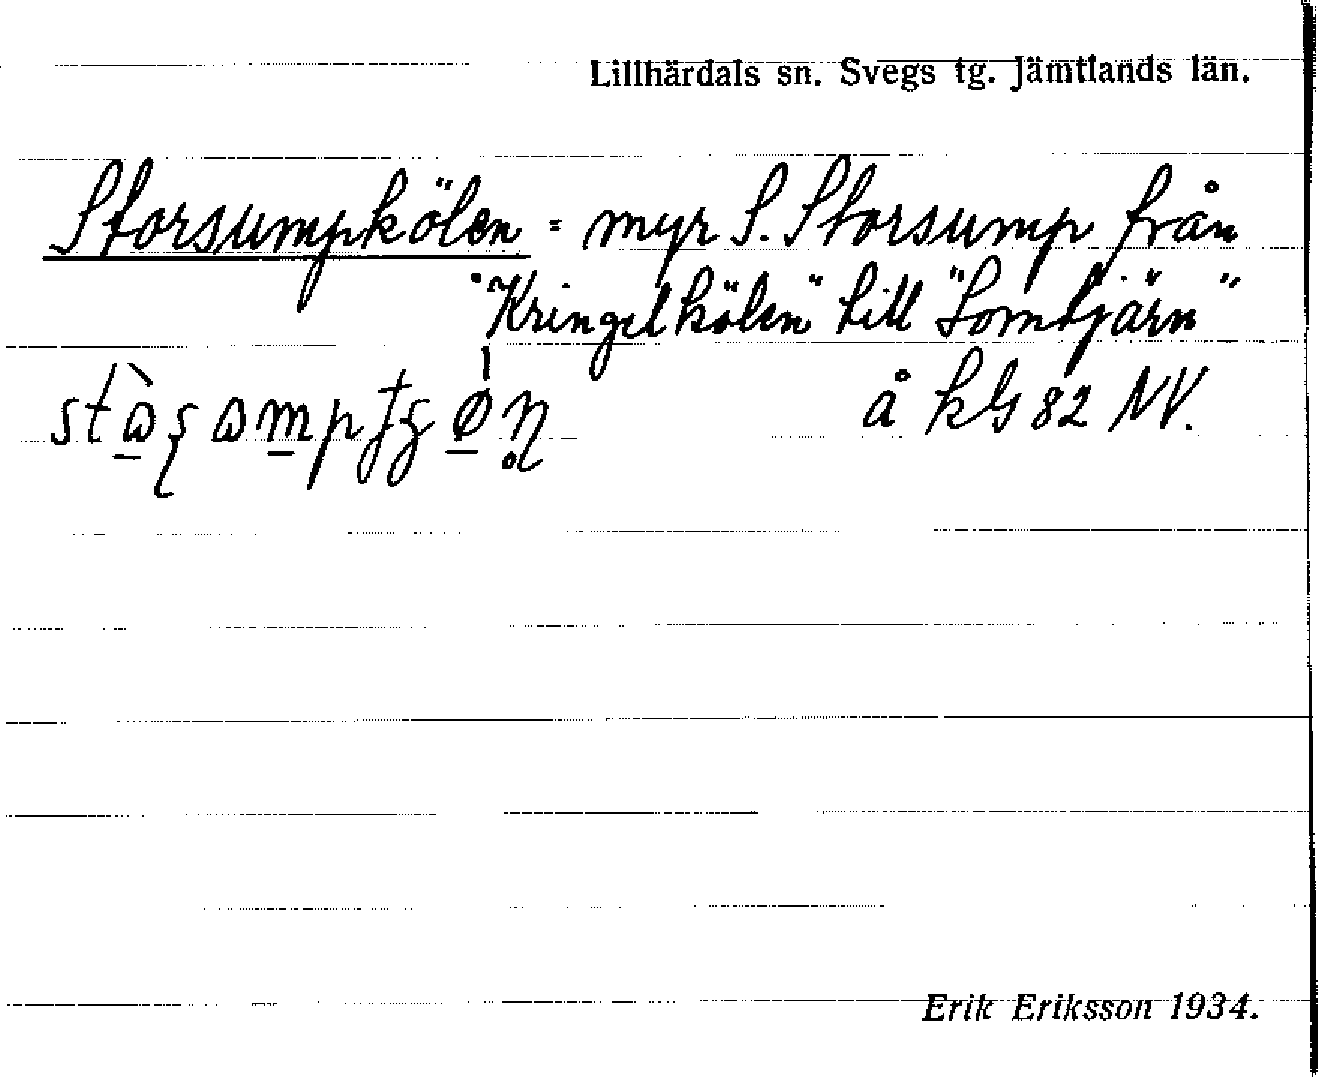 Lillhärdals sn. Svegs tg. Jämtlands län.
Storsumpkölen = myr S. Storsump från
"Kringelkölen" till "Lomtjärn"
å kG 82 NV.
Erik Eriksson 1934.